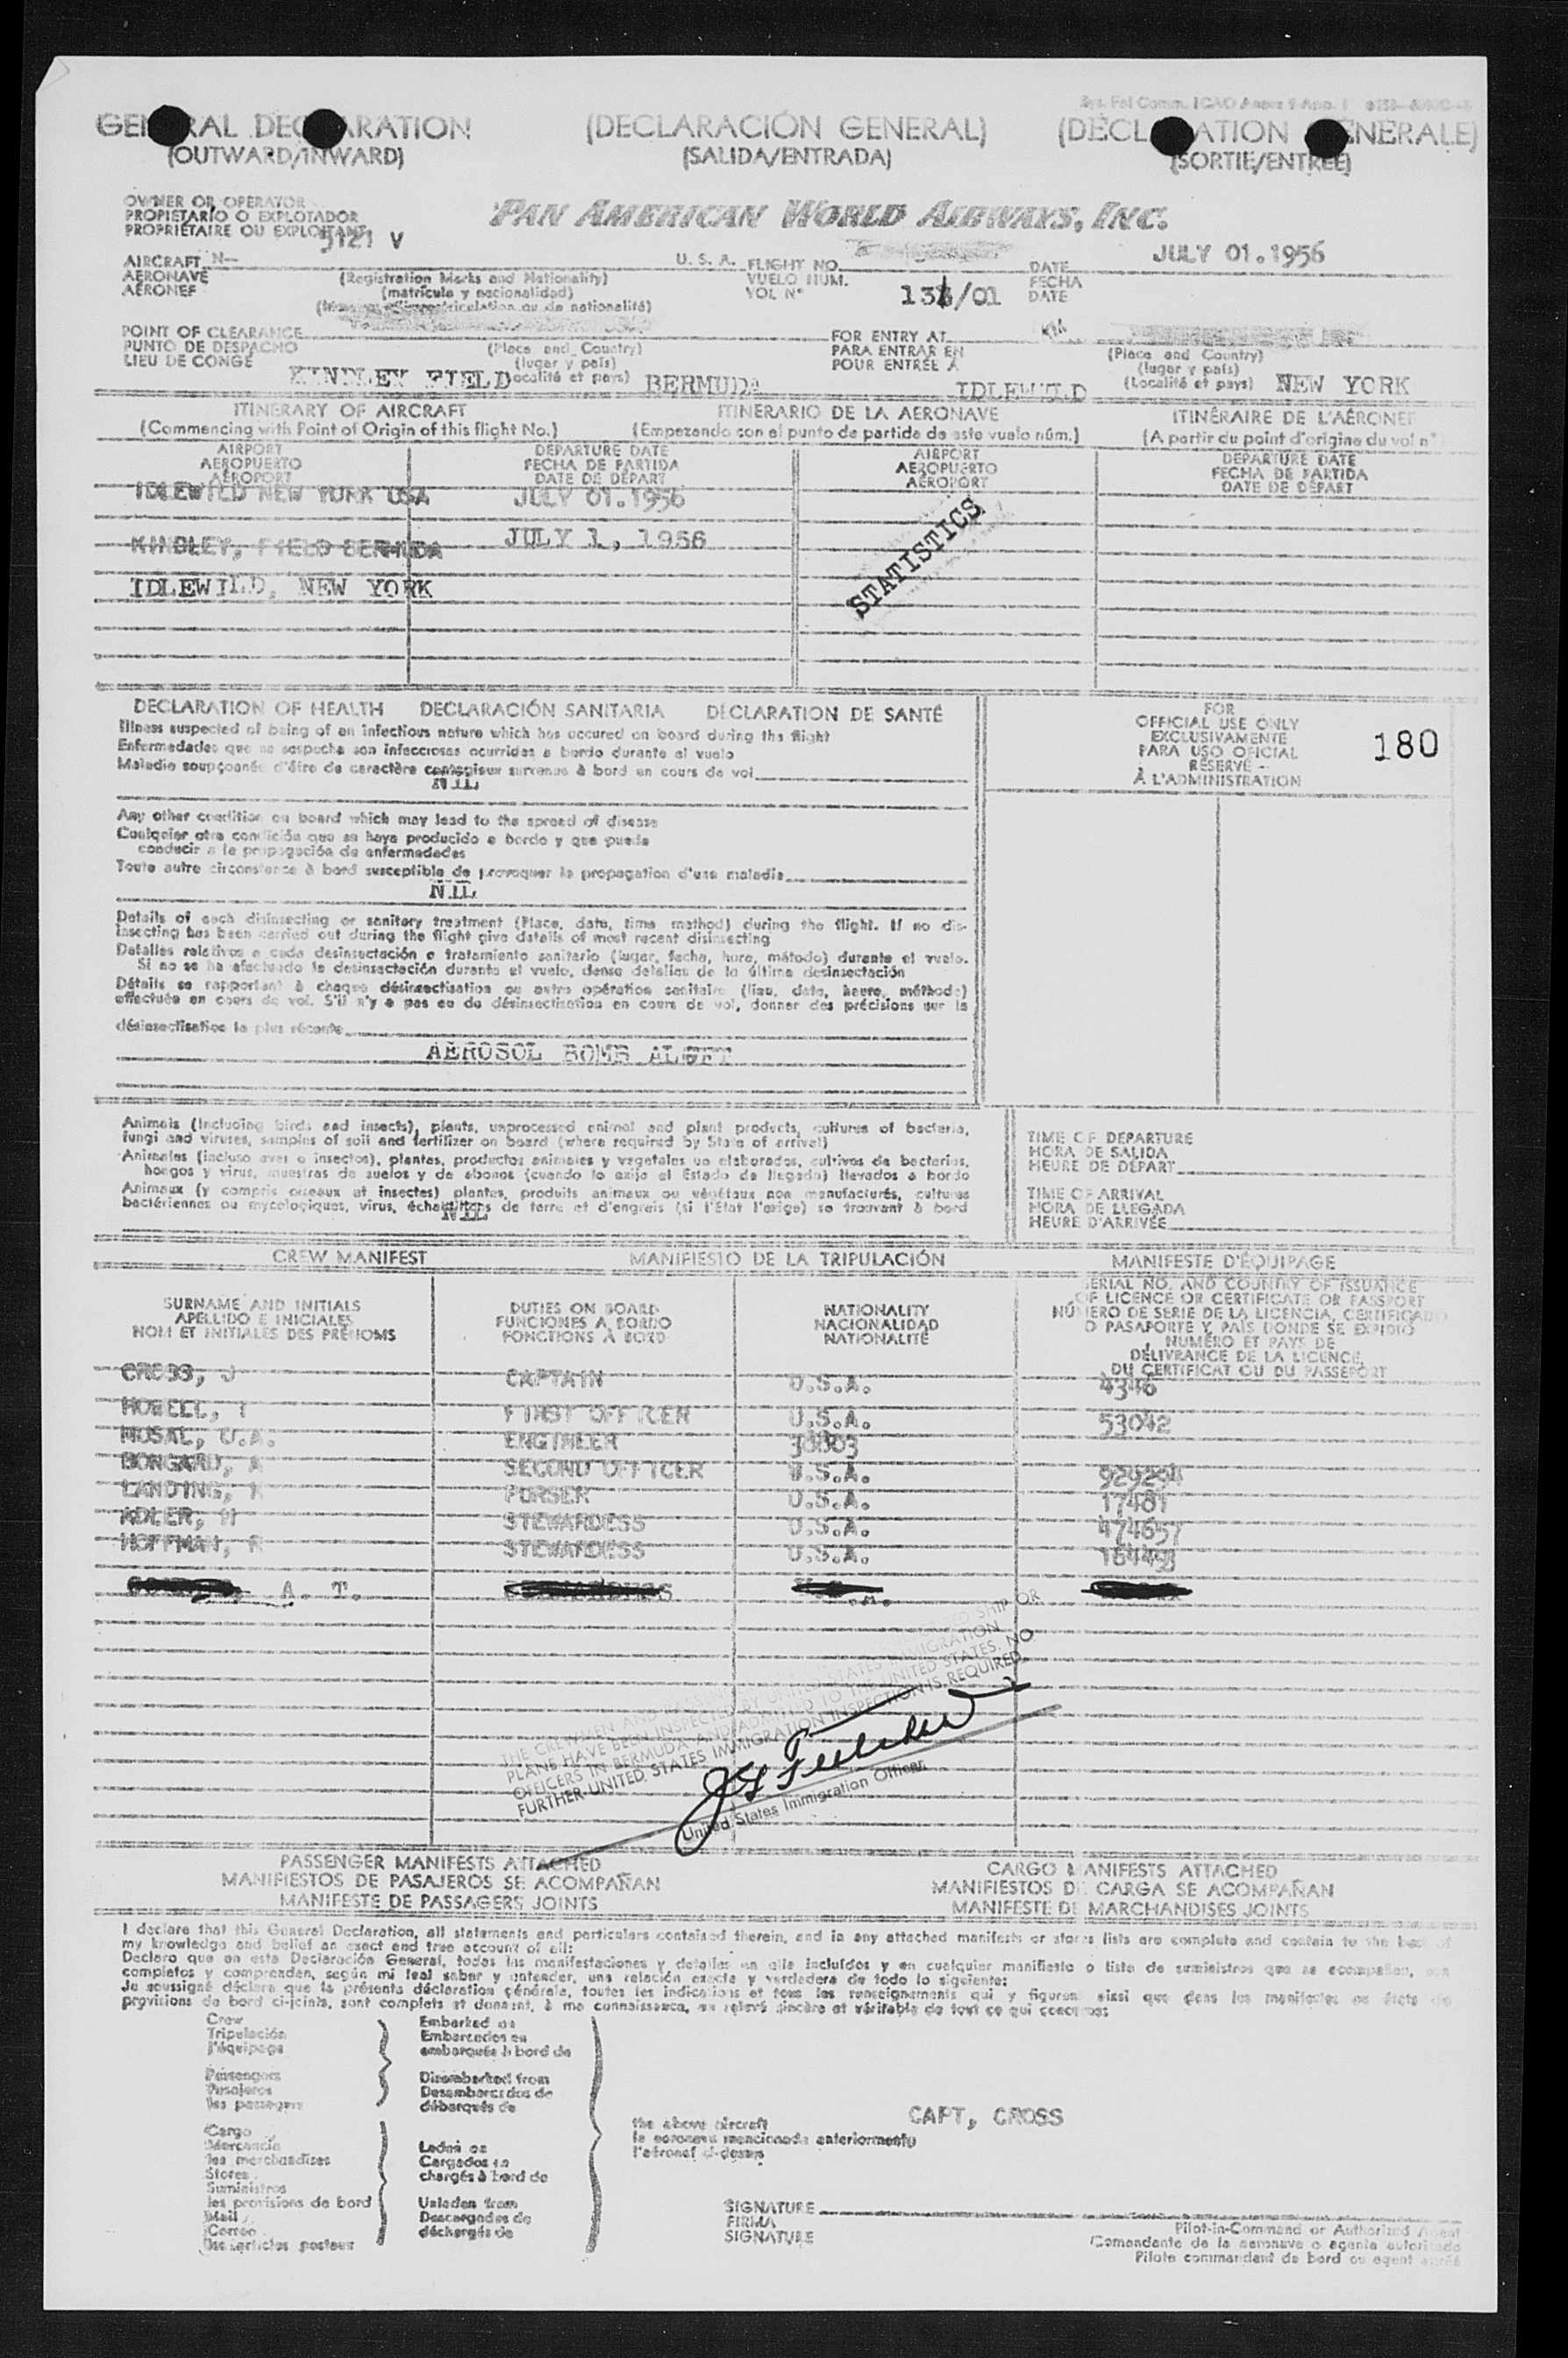 (DECLARACIÓN GENERAL)
(OUTWARD/INWARD) (SALIDA/ENTRADA) (SORTIE/ENTRÉE)
OWNER OR OPERATOR
PROPIETARIO O EXPLOTADOR
PROPRIÉTAIRE OU EXPLOITANT
PAN AMERICAN WORLD AIRWAYS, INC.
5121 V
AIRCRAFT N— U. S. A. FLIGHT NO. DATE JULY 01.1956
AERONAVE (Registration Marks and Nationality) VUELO NUM. FECHA
AÉRONEF (matrícula y nacionalidad) VOL N° /01 DATE
POINT OF CLEARANCE FOR ENTRY AT
PUNTO DE DESPACHO (Place and Country) PARA ENTRAR EN (Place and Country)
LIEU DE CONGÉ (lugar y país) POUR ENTRÉE A (lugar y país)
KINDLEY FIELD (localité et pays) BERMUDA IDLEWILD (localité et pays) NEW YORK
ITINERARY OF AIRCRAFT ITINERARIO DE LA AERONAVE ITINÉRAIRE DE L'AÉRONEF
(Commencing with Point of Origin of this flight No.) (Empezando con el punto de partida de este vuelo núm.) (A partir du point d'origine du vol n°
AIRPORT DEPARTURE DATE AIRPORT DEPARTURE DATE
AEROPUERTO FECHA DE PARTIDA AEROPUERTO FECHA DE PARTIDA
AÉROPORT DATE DE DÉPART AÉROPORT DATE DE DÉPART
IDLEWILD NEW YORK USA JULY 01.1956
KINDLEY, FIELD BERMUDA JULY 1, 1956
IDLEWILD, NEW YORK
STATISTICS
DECLARATION OF HEALTH DECLARACIÓN SANITARIA DECLARATION DE SANTÉ
Illness suspected of being of an infectious nature which has occured on board during the flight
Enfermedades que se sospecha son infecciosas ocurridas a bordo durante el vuelo
Maladie soupçonnée d'être de caractère contagieux survenue à bord en cours de vol
NIL
FOR
OFFICIAL USE ONLY
EXCLUSIVAMENTE
PARA USO OFICIAL
RÉSERVÉ
À L'ADMINISTRATION
180
Any other condition on board which may lead to the spread of disease
Cualquier otra condición que se haya producido a bordo y que pueda
conducir a la propagación de enfermedades
Toute autre circonstance à bord susceptible de provoquer la propagation d'une maladie
NIL
Details of each disinsecting or sanitary treatment (Place, date, time method) during the flight. If no dis-
insecting has been carried out during the flight give details of most recent disinsecting
Detalles relativos a cada desinsectación o tratamiento sanitario (lugar, fecha, hora, método) durante el vuelo.
Si no se ha efectuado la desinsectación durante el vuelo, dense detalles de la última desinsectación
Détails se rapportant à chaque désinsectisation ou autre opération sanitaire (lieu, date, heure, méthode)
effectuée en cours de vol. S'il n'y a pas eu de désinsectisation en cours de vol, donner des précisions sur la
désinsectisation la plus récente
AEROSOL BOMB
Animals (including birds and insects), plants, unprocessed animal and plant products, cultures of bacteria,
fungi and viruses, samples of soil and fertilizer on board (where required by State of arrival)
Animales (incluso aves e insectos), plantas, productos animales y vegetales no elaborados, cultivos de bacterias,
hongos y virus, muestras de suelos y de abonos (cuando lo exija el Estado de llegada) llevados a bordo
Animaux (y compris oiseaux et insectes) plantes, produits animaux ou végétaux non manufacturés, cultures
bactériennes ou mycologiques, virus, échantillons de terre et d'engrais (si l'État l'exige) se trouvant à bord
NIL
TIME OF DEPARTURE
HORA DE SALIDA
HEURE DE DÉPART
TIME OF ARRIVAL
HORA DE LLEGADA
HEURE D'ARRIVÉE
CREW MANIFEST MANIFIESTO DE LA TRIPULACIÓN MANIFESTE D'ÉQUIPAGE
SURNAME AND INITIALS
APELLIDO E INICIALES
NOM ET INITIALES DES PRÉNOMS
DUTIES ON BOARD
FUNCIONES A BORDO
FONCTIONS À BORD
NATIONALITY
NACIONALIDAD
NATIONALITÉ
SERIAL NO. AND COUNTRY OF ISSUANCE
OF LICENCE OR CERTIFICATE OR PASSPORT
NÚMERO DE SERIE DE LA LICENCIA, CERTIFICADO
O PASAPORTE Y PAÍS DONDE SE EXPIDIÓ
NUMÉRO ET PAYS DE
DÉLIVRANCE DE LA LICENCE,
DU CERTIFICAT OU DU PASSEPORT
CROSS, J CAPTAIN U.S.A. 4346
HOWELL, FIRST OFFICER U.S.A. 53042
MUSAL, ENGINEER
BONGARD, A SECOND OFFICER U.S.A.
LANDING, PURSER U.S.A. 17481
ADLER, STEWARDESS U.S.A. 474657
HOFFMAN, R STEWARDESS U.S.A. 16449
A. T.
THE CREWMEN AND
PLANE HAVE BEEN INSPECTED BY UNITED STATES IMMIGRATION
OFFICERS IN BERMUDA AND ADMITTED TO THE UNITED STATES. NO
FURTHER UNITED STATES IMMIGRATION INSPECTION IS REQUIRED.
United States Immigration Officer
PASSENGER MANIFESTS ATTACHED CARGO MANIFESTS ATTACHED
MANIFIESTOS DE PASAJEROS SE ACOMPAÑAN MANIFIESTOS DE CARGA SE ACOMPAÑAN
MANIFESTE DE PASSAGERS JOINTS MANIFESTE DE MARCHANDISES JOINTS
I declare that this General Declaration, all statements and particulars contained therein, and in any attached manifests or stores lists are complete and contain to the best of
my knowledge and belief an exact and true account of all:
Declaro que en esta Declaración General, todas las manifestaciones y detalles en ella incluidos y en cualquier manifiesto o lista de suministros que se acompañan, son
completos y comprenden, según mi leal saber y entender, una relación exacta y verdadera de todo lo siguiente:
Je soussigné déclare que la présente déclaration générale, toutes les indications et tous les renseignements qui y figurent aissi que dans les manifestes ou états de
provisions de bord ci-joints, sont complets et donnent, à ma connaissance, un relevé sincère et véritable de tout ce qui concerne:
Crew
Tripulación
l'équipage
Passengers
Pasajeros
les passagers
Cargo
Mercancía
les merchandises
Stores
Suministros
les provisions de bord
Mail
Correo
les articles postaux
Embarked on
Embarcados en
embarqués à bord de
Disembarked from
Desembarcados de
débarqués de
Laden on
Cargados en
chargés à bord de
Unladen from
Descargados de
déchargés de
the above aircraft
la aeronave mencionada anteriormente
l'aéronef ci-dessus
CAPT, CROSS
SIGNATURE
FIRMA
SIGNATURE
Pilot-in-Command or Authorized Agent
Comandante de la aeronave o agente autorizado
Pilote commandant de bord ou agent agréé